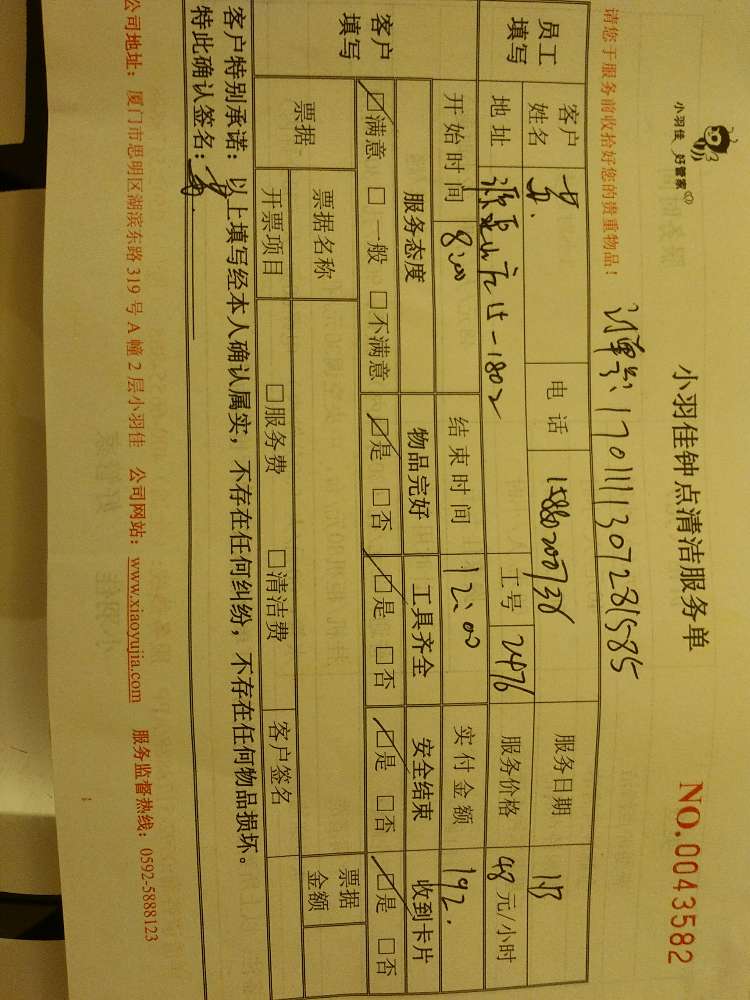 小羽佳 好管家
小羽佳钟点清洁服务单
NO.0043582
请您于服务前收拾好您的贵重物品！
订单号: 1701111307281585
员工填写
客户姓名 电话 服务日期
地址 -1802 工号 2476 服务价格 48 元/小时
开始时间 8:00 结束时间 12:00 实付金额 192.
客户填写
服务态度 物品完好 工具齐全 安全结束 收到卡片
☑满意 □一般 □不满意 ☑是 □否 ☑是 □否 ☑是 □否 ☑是 □否
票据 票据名称 票据金额
开票项目 □服务费 □清洁费 客户签名
客户特别承诺：以上填写经本人确认属实，不存在任何纠纷，不存在任何物品损坏。
特此确认签名：
公司地址：厦门市思明区湖滨东路 319 号 A 幢 2 层小羽佳 公司网站：www.xiaoyujia.com 服务监督热线：0592-5888123